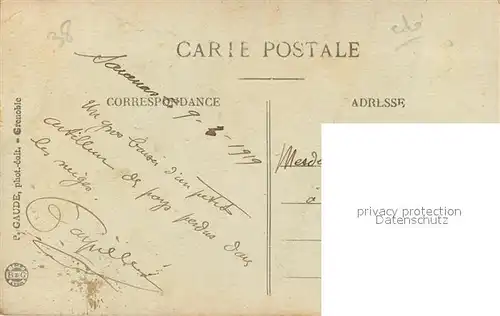 38
CARTE POSTALE
CORRESPONDANCE
ADRESSE
9-3-1919
Un gros baiser d'un petit
artilleur de pays perdus dans
les neiges.
P. GAUDE, phot-édit. - Grenoble
privacy protection
Datenschutz
BRG